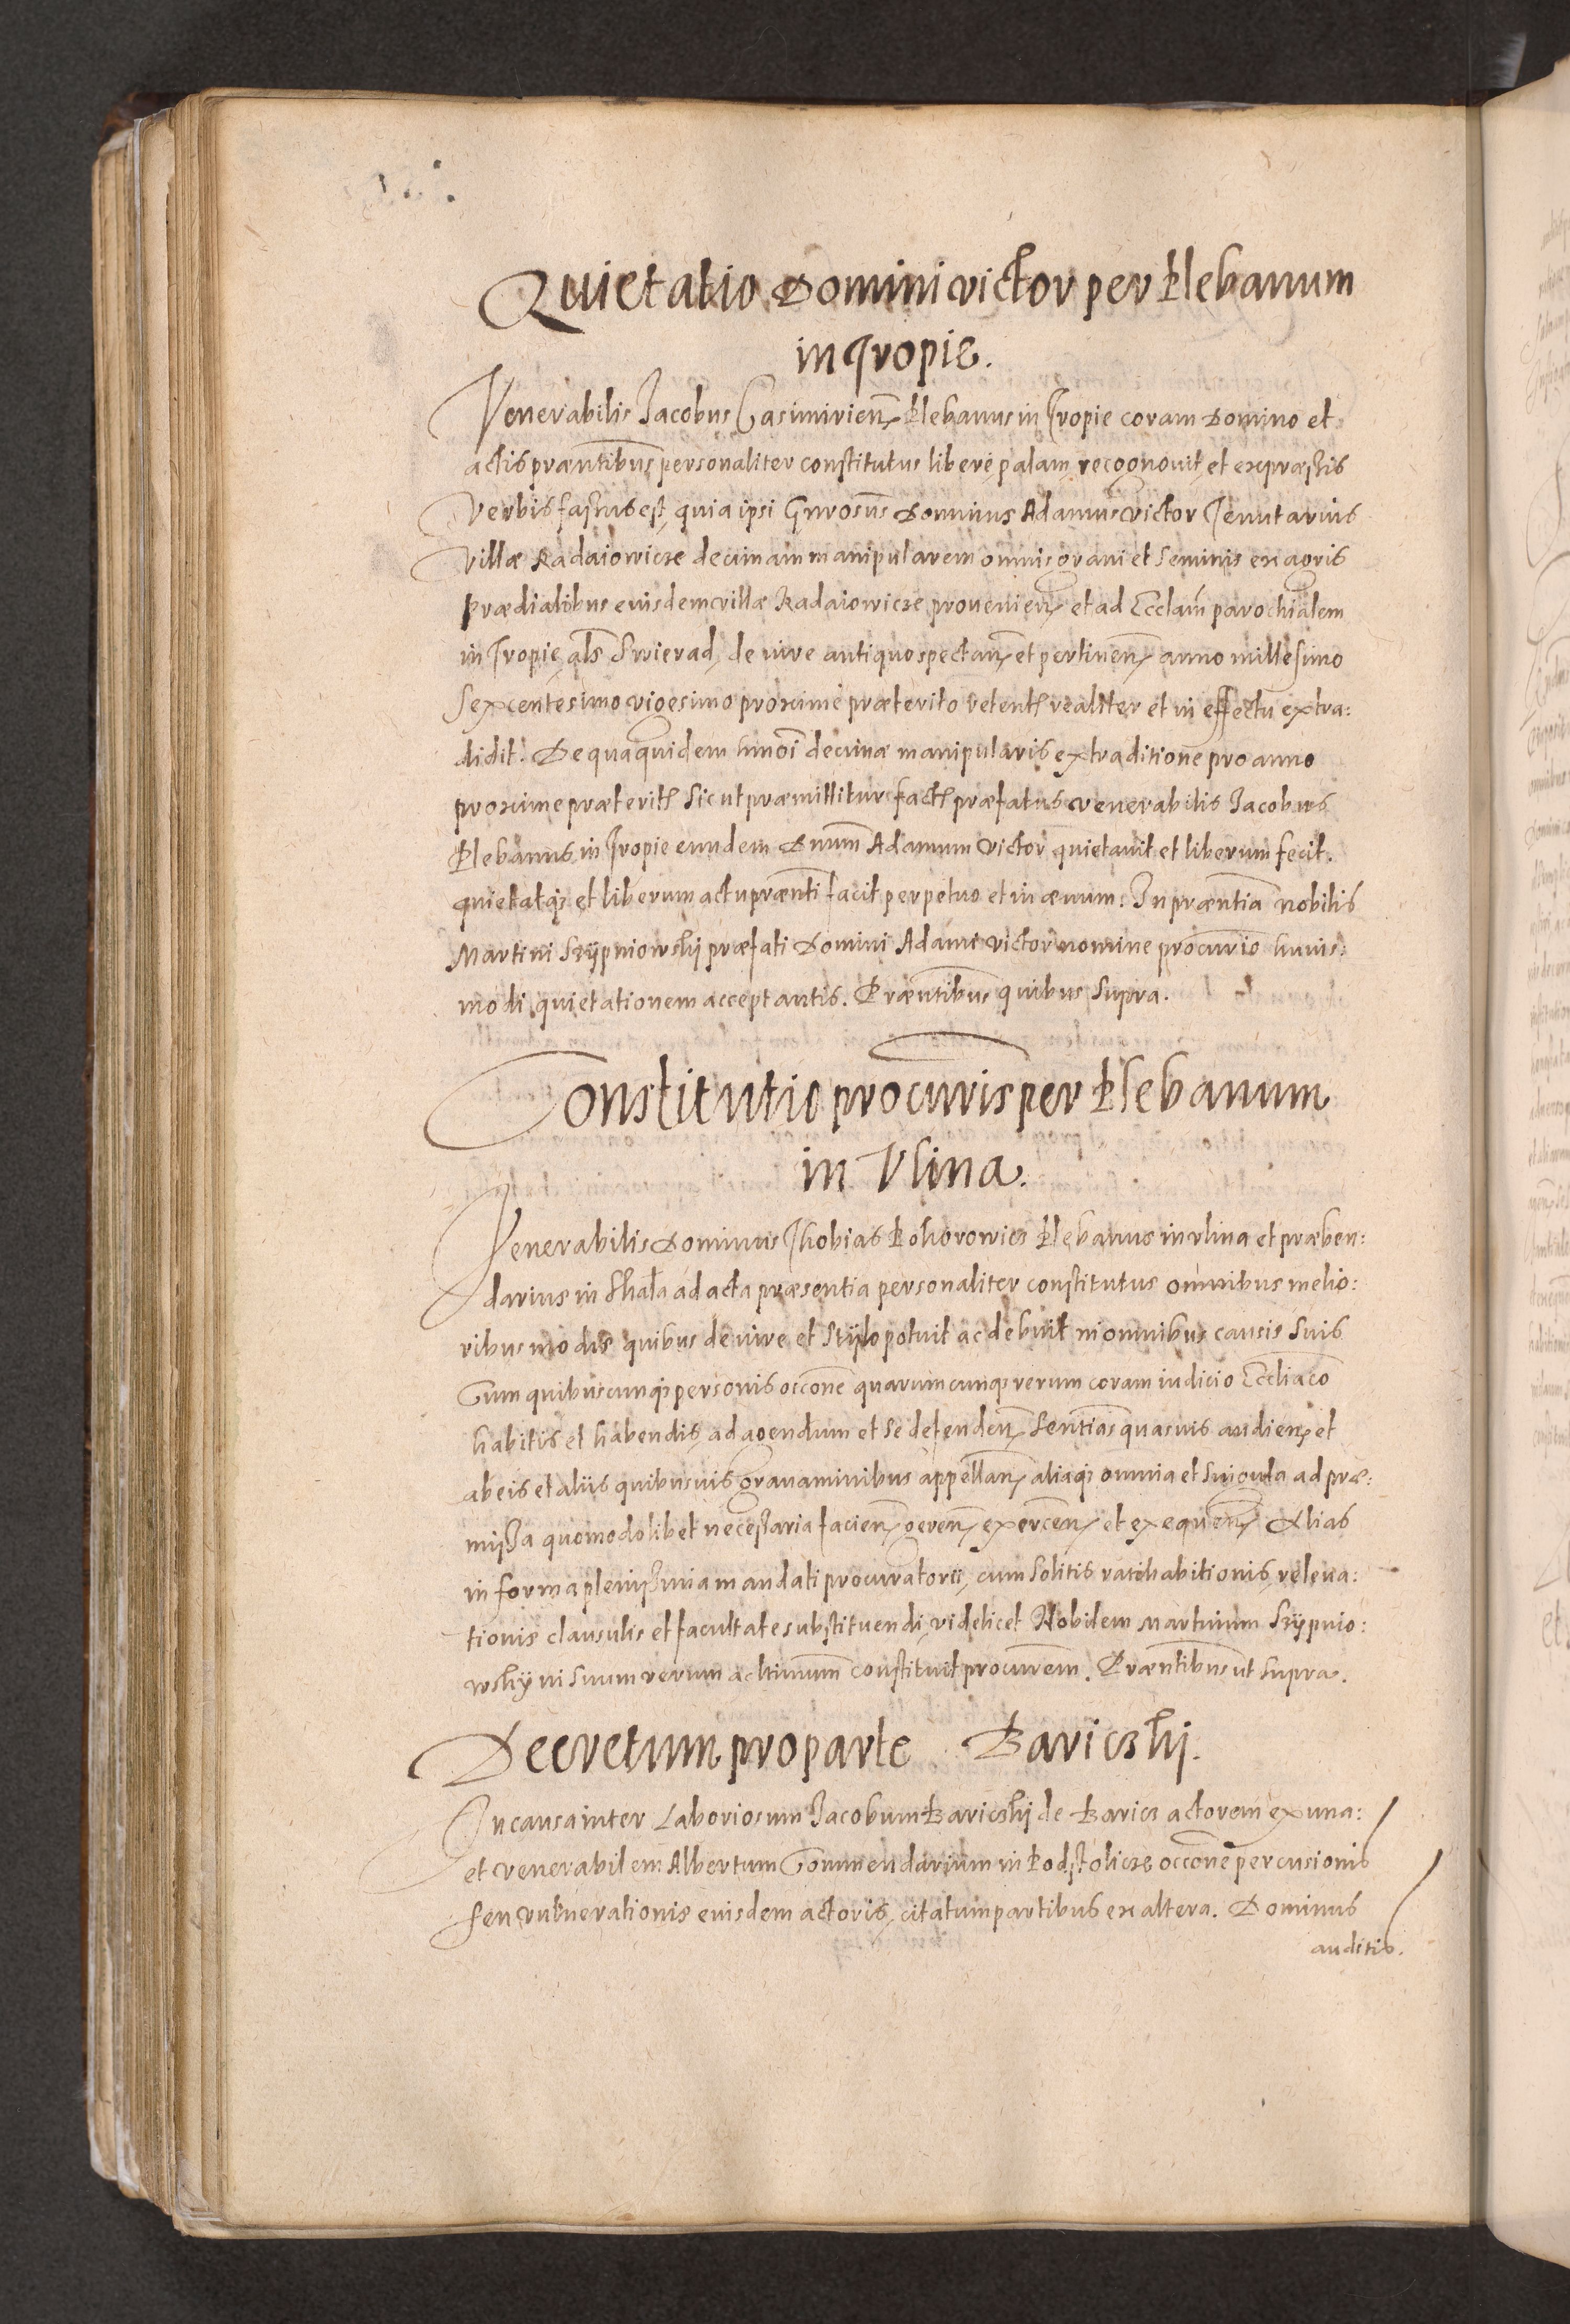 Quietatio Domini victor per Plebanum
in Tropie.
Venerabilis Jacobus Casimirien̄ Plebanus in Tropie coram Domino et
actis præntibus personaliter constitutus liberè palam recognouit, et expressis
Verbis fassus est, quia ipsi Gnrosus Dominus Adamus victor Tenutarius
Villæ Radaiowicze decimam manipularem omnis grani et seminis ex agris
Prædialibus eiusdem villæ Radaiowicze prouenien̄ et ad Ecclam̄ parochialem
in Tropie als̄ Swierad, de iure antiquo spectan̄ et pertinen̄ anno millesimo
sexcentesimo vigesimo proxime præterito retent realiter et in effectu extra:
didit. De qua quidem hmoi decimæ manipularis extraditione pro anno
proxime præterit sicut præmittitur fact præfatus venerabilis Jacobus
Plebanus in Tropie eundem Dnum̄ Adamum victor quietauit et liberum fecit.
quietatq; et liberum actu prænti facit perpetuo et in æuum. In præntia nobilis
Martini Szÿpniowskÿ præfati Domini Adami victor nomine procurio huius:
modi quietationem acceptantis. Præntibus quibus supra.
Constitutio procuris per Plebanum
in Vlina.
Venerabilis Dominus Thobias Kokorowicz Plebanus in vlina et præben:
darius in Skała ad acta præsentia personaliter constitutus omnibus melio:
ribus modis quibus de iure et stÿlo potuit ac debuit in omnibus causis suis
Cum quibuscunq; personis occone quarumcunq; rerum coram iudicio Eccliaco
habitis et habendis, ad agendum et se defenden̄ sentias quasuis audien̄ et
ab eis et aliis quibusuis grauaminibus appellan̄ aliaq; omnia et singula ad præ:
missa quomodolibet necessaria facien̄ geren̄ exercen̄ et exequen̄ Alias
in forma plenissima mandati procuratorii, cum solitis ratihabitionis, releua:
tionis clausulis et facultate substituendi, videlicet Nobilem Martinum Szÿpnio:
wskÿ in suum verum ac ltimum constituit procurem. Præntibus ut supra.
Decretum pro parte Bariczkj.
In causa inter Laboriosum Jacobum Bariczkj de Baricz actorem ex una:
et venerabilem Albertum Commendarium in Podstolicze occone percusionis
seu vulnerationis eiusdem actoris, citatum partibus ex altera. Dominus
auditis.